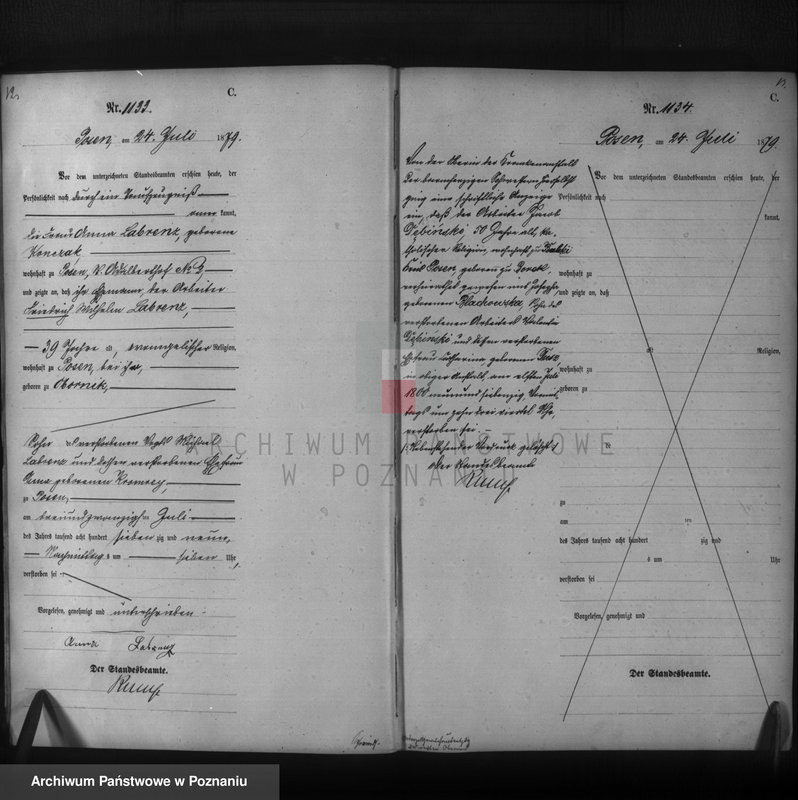 12.
C.
Nr. 1133.
Posen, am 24. Juli 1879.
Vor dem unterzeichneten Standesbeamten erschien heute, der
Persönlichkeit nach durch ein
kannt,
die Frau Anna Labrenz, geborene
Konczak
wohnhaft zu Posen, St. Adalberthof No 2,
und zeigte an, daß ihr Ehemann, der Arbeiter
Friedrich Wilhelm Labrenz,
39 Jahre alt, evangelischer Religion,
wohnhaft zu Posen, bei ihr,
geboren zu Obornik,
Sohn des verstorbenen Michael
Labrenz und dessen verstorbenen Ehefrau
Anna geborenen
zu Posen,
am dreiundzwanzigsten Juli
des Jahres tausend acht hundert siebenzig und neun,
Nachmittags um sieben Uhr,
verstorben sei
Vorgelesen, genehmigt und unterschrieben
Anna Labrenz
Der Standesbeamte.
C.
Nr. 1134.
Posen, am 24. Juli 1879.
Von der Oberin der Krankenanstalt
der barmherzigen Schwestern
ging eine schriftliche Anzeige
ein, daß der Arbeiter Jacob
Dębinski, 50 Jahre alt, ka-
tholischer Religion, wohnhaft zu
Kreis Posen, geboren zu
verheirathet gewesen mit Josepha
geborenen Blachowska, Sohn des
verstorbenen Arbeiters
Dębinski und dessen verstorbenen
Ehefrau Catharina geborenen
in obiger Anstalt, am elften Juli
1800 neunundsiebenzig, Vormit-
tags um zehn drei viertel Uhr
verstorben sei.
Nebenstehender Vordruck gelöscht
Der Standesbeamte
Vor dem unterzeichneten Standesbeamten erschien heute, der
Persönlichkeit nach
kannt,
wohnhaft zu
und zeigte an, daß
alt, Religion,
wohnhaft zu
geboren zu
zu
am ten
des Jahres tausend acht hundert zig und
s um Uhr
verstorben sei
Vorgelesen, genehmigt und
Der Standesbeamte.
ARCHIWUM PAŃSTWOWE
W POZNANIU
Archiwum Państwowe w Poznaniu